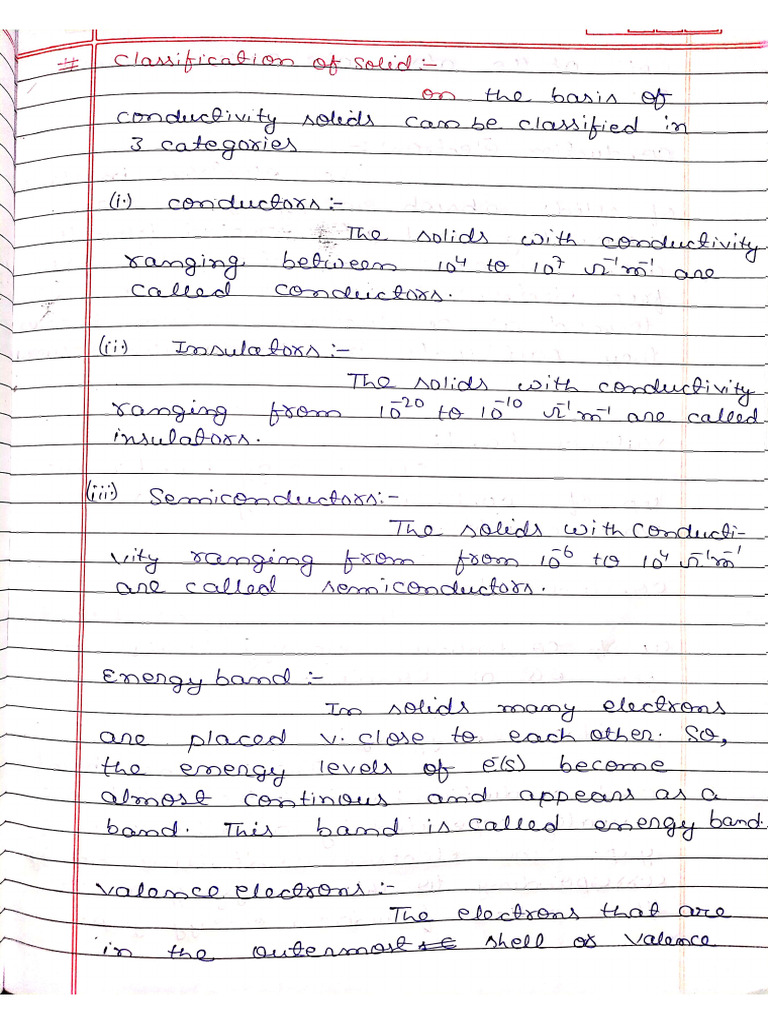 # Classification of Solid :-
on the basis of
conductivity solids can be classified in
3 categories
(i.) conductors :-
The solids with conductivity
ranging between 10⁴ to 10⁷ Ω⁻¹m⁻¹ are
called conductors.
(ii.) Insulators :-
The solids with conductivity
ranging from 10⁻²⁰ to 10⁻¹⁰ Ω⁻¹m⁻¹ are called
insulators.
(iii) Semiconductors:-
The solids with conducti-
vity ranging from from 10⁻⁶ to 10⁴ Ω⁻¹m⁻¹
are called semiconductors.
Energy band :-
In solids many electrons
are placed v. close to each other. So,
the energy levels of e⁻(s) become
almost continous and appears as a
band. This band is called energy band.
Valence electrons :-
The electrons that are
in the outermost shell or valence